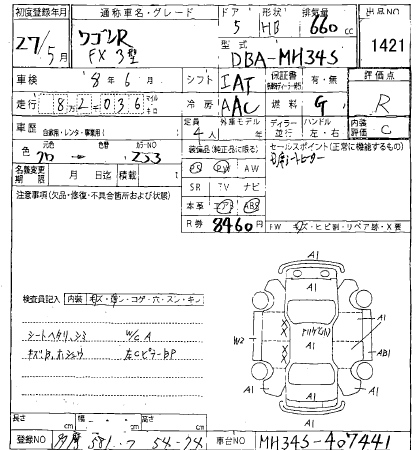 初度登録年月 通称車名・グレード ドア 形状 排気量 出品NO
27/5月 ワゴンR FX 3型 5 HB 660 cc 1421
型式 DBA-MH34S
車検 8年6月 シフト IAT 保証書 有・無 評価点
走行 82036 マイル キロ 冷房 AAC 燃料 G R
車歴 自家用・レンタ・事業用( ) 定員 4人 外車モデル 年 ディーラー 並行 ハンドル 左・右 内装評価 C
色 元色 色替 カラーNO Z53 装備品(純正品に限る) セールスポイント(正常に機能するもの)
PS PW AW
名義変更期限 月 日迄 積載 t SR TV ナビ
注意事項(欠品・修復・不具合箇所および状態) 本革 エアB ABS
R券 8460円 FW キズ・ヒビ割・リペア跡・X要
A1
検査員記入 内装 キズ・コゲ・穴・スン・キレ
A1 A1
シートヘタリ、シミ W/C A
W2 A1
キズB、ホシュウ 左CピラーBP
AB1
A1 A1
A1
長さ cm 幅 cm 高さ cm
登録NO 581 54-74 車台NO MH34S-407441